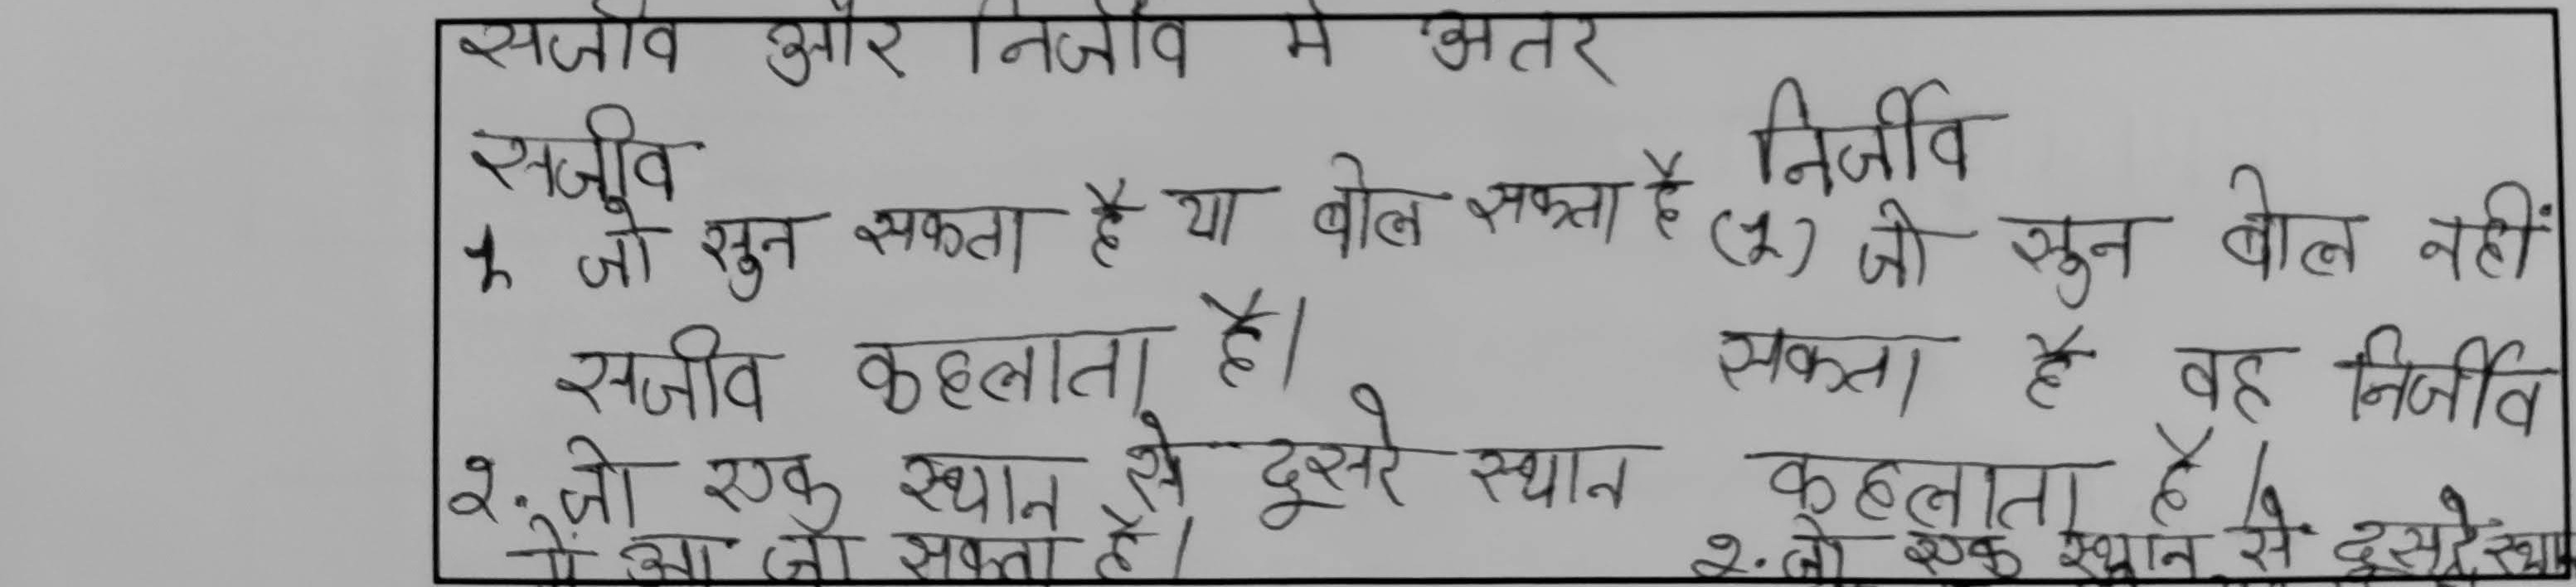 सजीव और निर्जीव में अंतर
सजीव
निर्जीव
1. जो सुन सकता है या बोल सकता है
सजीव कहलाता है।
2. जो एक स्थान से दूसरे स्थान
में आ जा सकता है।
(1) जो सुन बोल नहीं
सकता है वह निर्जीव
कहलाता है।
2. जो एक स्थान से दूसरे स्थान